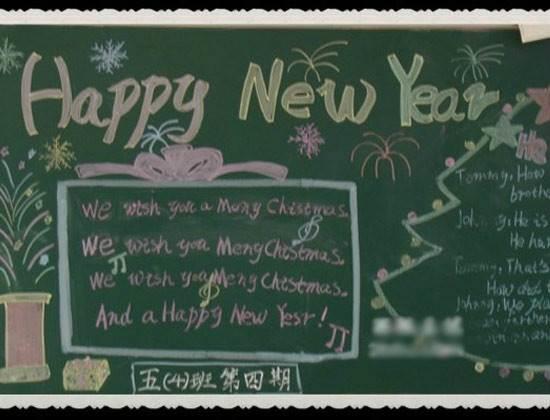 Happy New Year
We wish you a Meny Chistmas.
We wish you Meny Christmas.
We wish you Meny Christmas.
And a Happy New Year!
五(4)班 第四期
He
Tommy, How
brothe
Joh y, He is
He ha
Tommy, That's
How did
Johnny, We pla